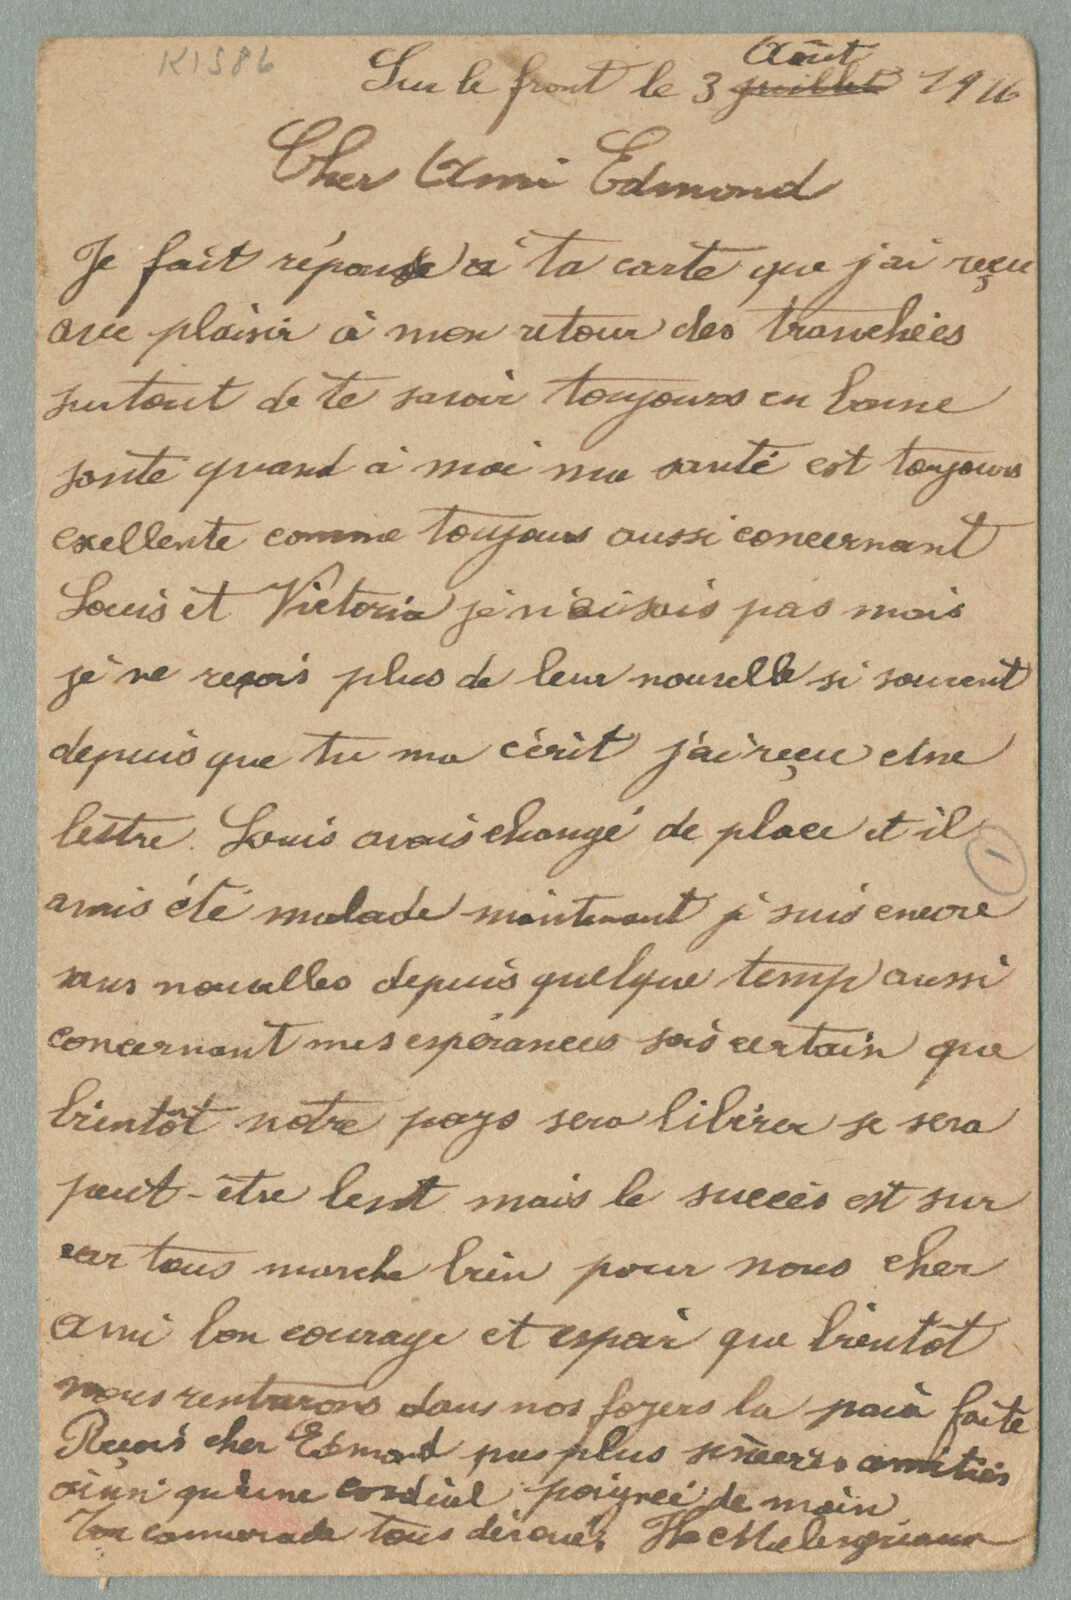 K1586
Sur le front le 3 juillet Août 1916
Cher Ami Edmond
Je fait réponse a ta carte que j'ai reçu
avec plaisir à mon retour des tranchées
surtout de te savoir toujours en bonne
santé quand à moi ma santé est toujours
exellente comme toujours aussi concernant
Louis et Victoria je n'ai sais pas mais
je ne reçois plus de leur nouvelle si souvent
depuis que tu ma écrit j'ai reçu une
lettre. Louis avais changé de place et il
1
avais été malade maintenant je suis encore
sans nouvelles depuis quelque temp aussi
concernant mes espérances sois certain que
bientôt notre pays sera libérer se sera
peut-être lent mais le succès est sur
car tous marche bien pour nous cher
ami bon courage et espoir que bientôt
nous rentrarons dans nos foyers la paix faite
Reçois cher Edmond mes plus sincères amitiés
ainsi qu'une cordial poignée de main
Ton camarade tous dévoué.